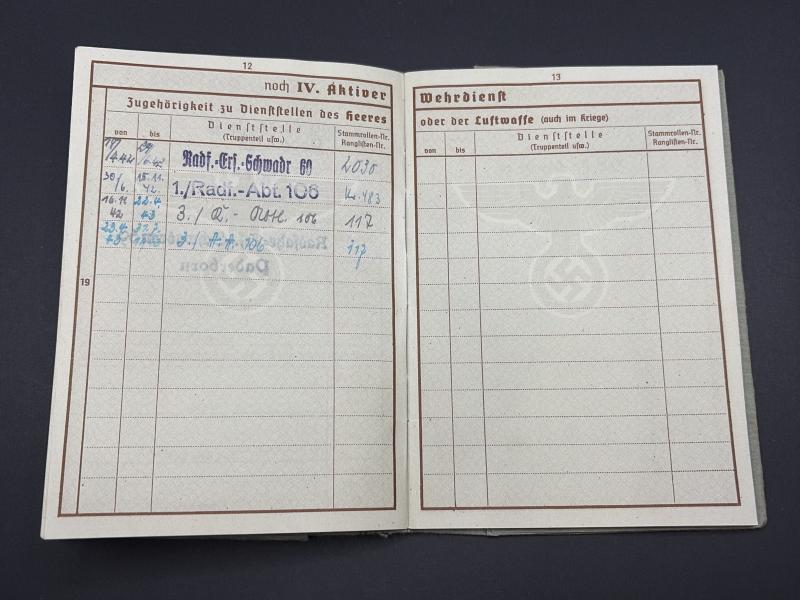 12
noch IV. Aktiver
Zugehörigkeit zu Dienststellen des Heeres
von
bis
Dienststelle
(Truppenteil usw.)
Stammrollen-Nr.
Ranglisten-Nr.
Radf.-Ers.-Schwadr 60
2030
30/6. 15.11. 42. 1./Radf.-Abt. 106 Kr. 483
16.11 42 22.4. 43 3./ 106 117
23.4. 43 3./ A.A. 106 117
Paderborn
19
13
Wehrdienst
oder der Luftwaffe (auch im Kriege)
von
bis
Dienststelle
(Truppenteil usw.)
Stammrollen-Nr.
Ranglisten-Nr.